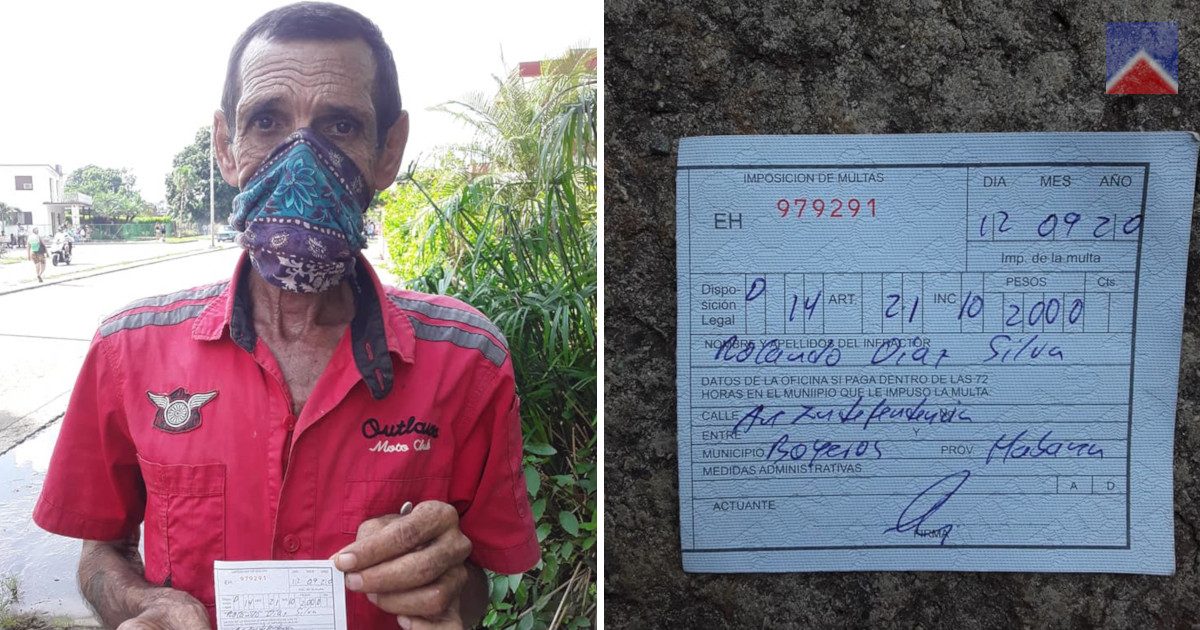 Outlaws
Moto Club
EH 979291
12 09 20
D 14 21 10 2000
Silva
IMPOSICION DE MULTAS
DIA MES AÑO
EH 979291
12 09 20
Imp. de la multa
Dispo-
sición
Legal
D 14 ART. 21 INC 10 PESOS 2000 Cts.
NOMBRE Y APELLIDOS DEL INFRACTOR
Rolando Diaz Silva
DATOS DE LA OFICINA SI PAGA DENTRO DE LAS 72
HORAS EN EL MUNIIPIO QUE LE IMPUSO LA MULTA
CALLE Av Independencia
ENTRE Y
MUNICIPIO Boyeros PROV Habana
MEDIDAS ADMINISTRATIVAS
A D
ACTUANTE
FIRMA